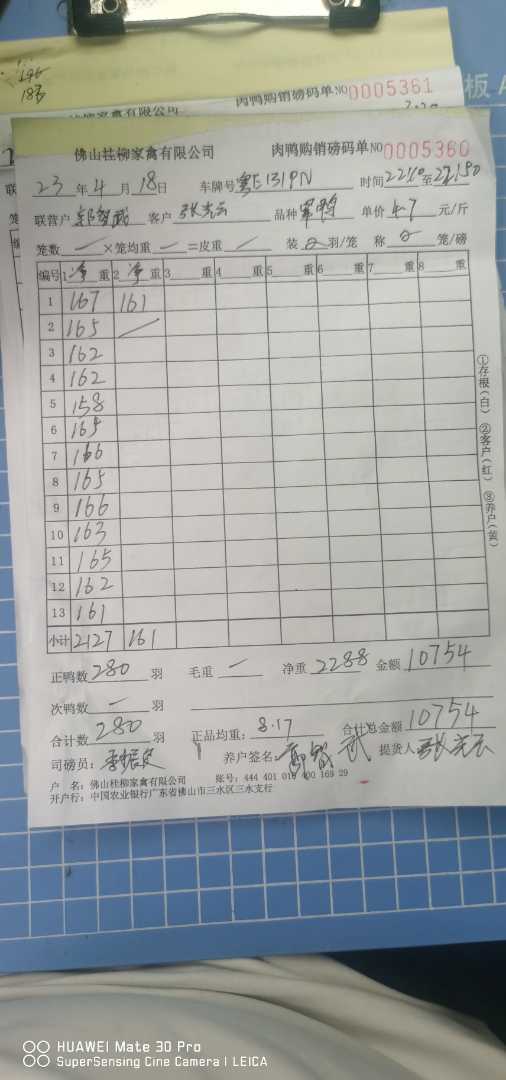 18
有限公司 肉鸭购销磅码单NO 0005361
板
佛山桂柳家禽有限公司 肉鸭购销磅码单NO 0005360
23年4月18日 车牌号粤E1319N 时间
联营户 客户 张 品种 单价4.7元/斤
笼数 / ×笼均重 / =皮重 / 装 羽/笼 称 笼/磅
编号 1净重 2净重 3 重 4 重 5 重 6 重 7 重 8 重
1 167 161
2 165 /
3 162
4 162
5 158
6 165
7 166
8 165
9 166
10 163
11 165
12 162
13 161
小计 2127 161
①存根(白) ②客户(红) ③养户(黄)
正鸭数280羽 毛重 一 净重2288 金额10754
次鸭数 一 羽
合计数280羽 正品均重:8.17 合计总金额10754
司磅员: 养户签名: 武 提货人
户 名:佛山桂柳家禽有限公司 账号:444 401 010 400 169 29
开户行:中国农业银行广东省佛山市三水区三水支行
HUAWEI Mate 30 Pro
SuperSensing Cine Camera | LEICA